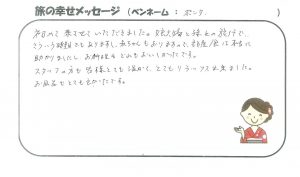 旅の幸せメッセージ（ペンネーム：ポンタ）
初めて来させていただきました。娘夫婦と孫との旅行で、
こういう時期でもありますし、赤ちゃんもおりますので、部屋食は本当に
助かりましたし、お料理もどれもおいしかったです。
スタッフの方も皆様とても温かく、とてもリラックス出来ました。
お風呂もとても良かったです。